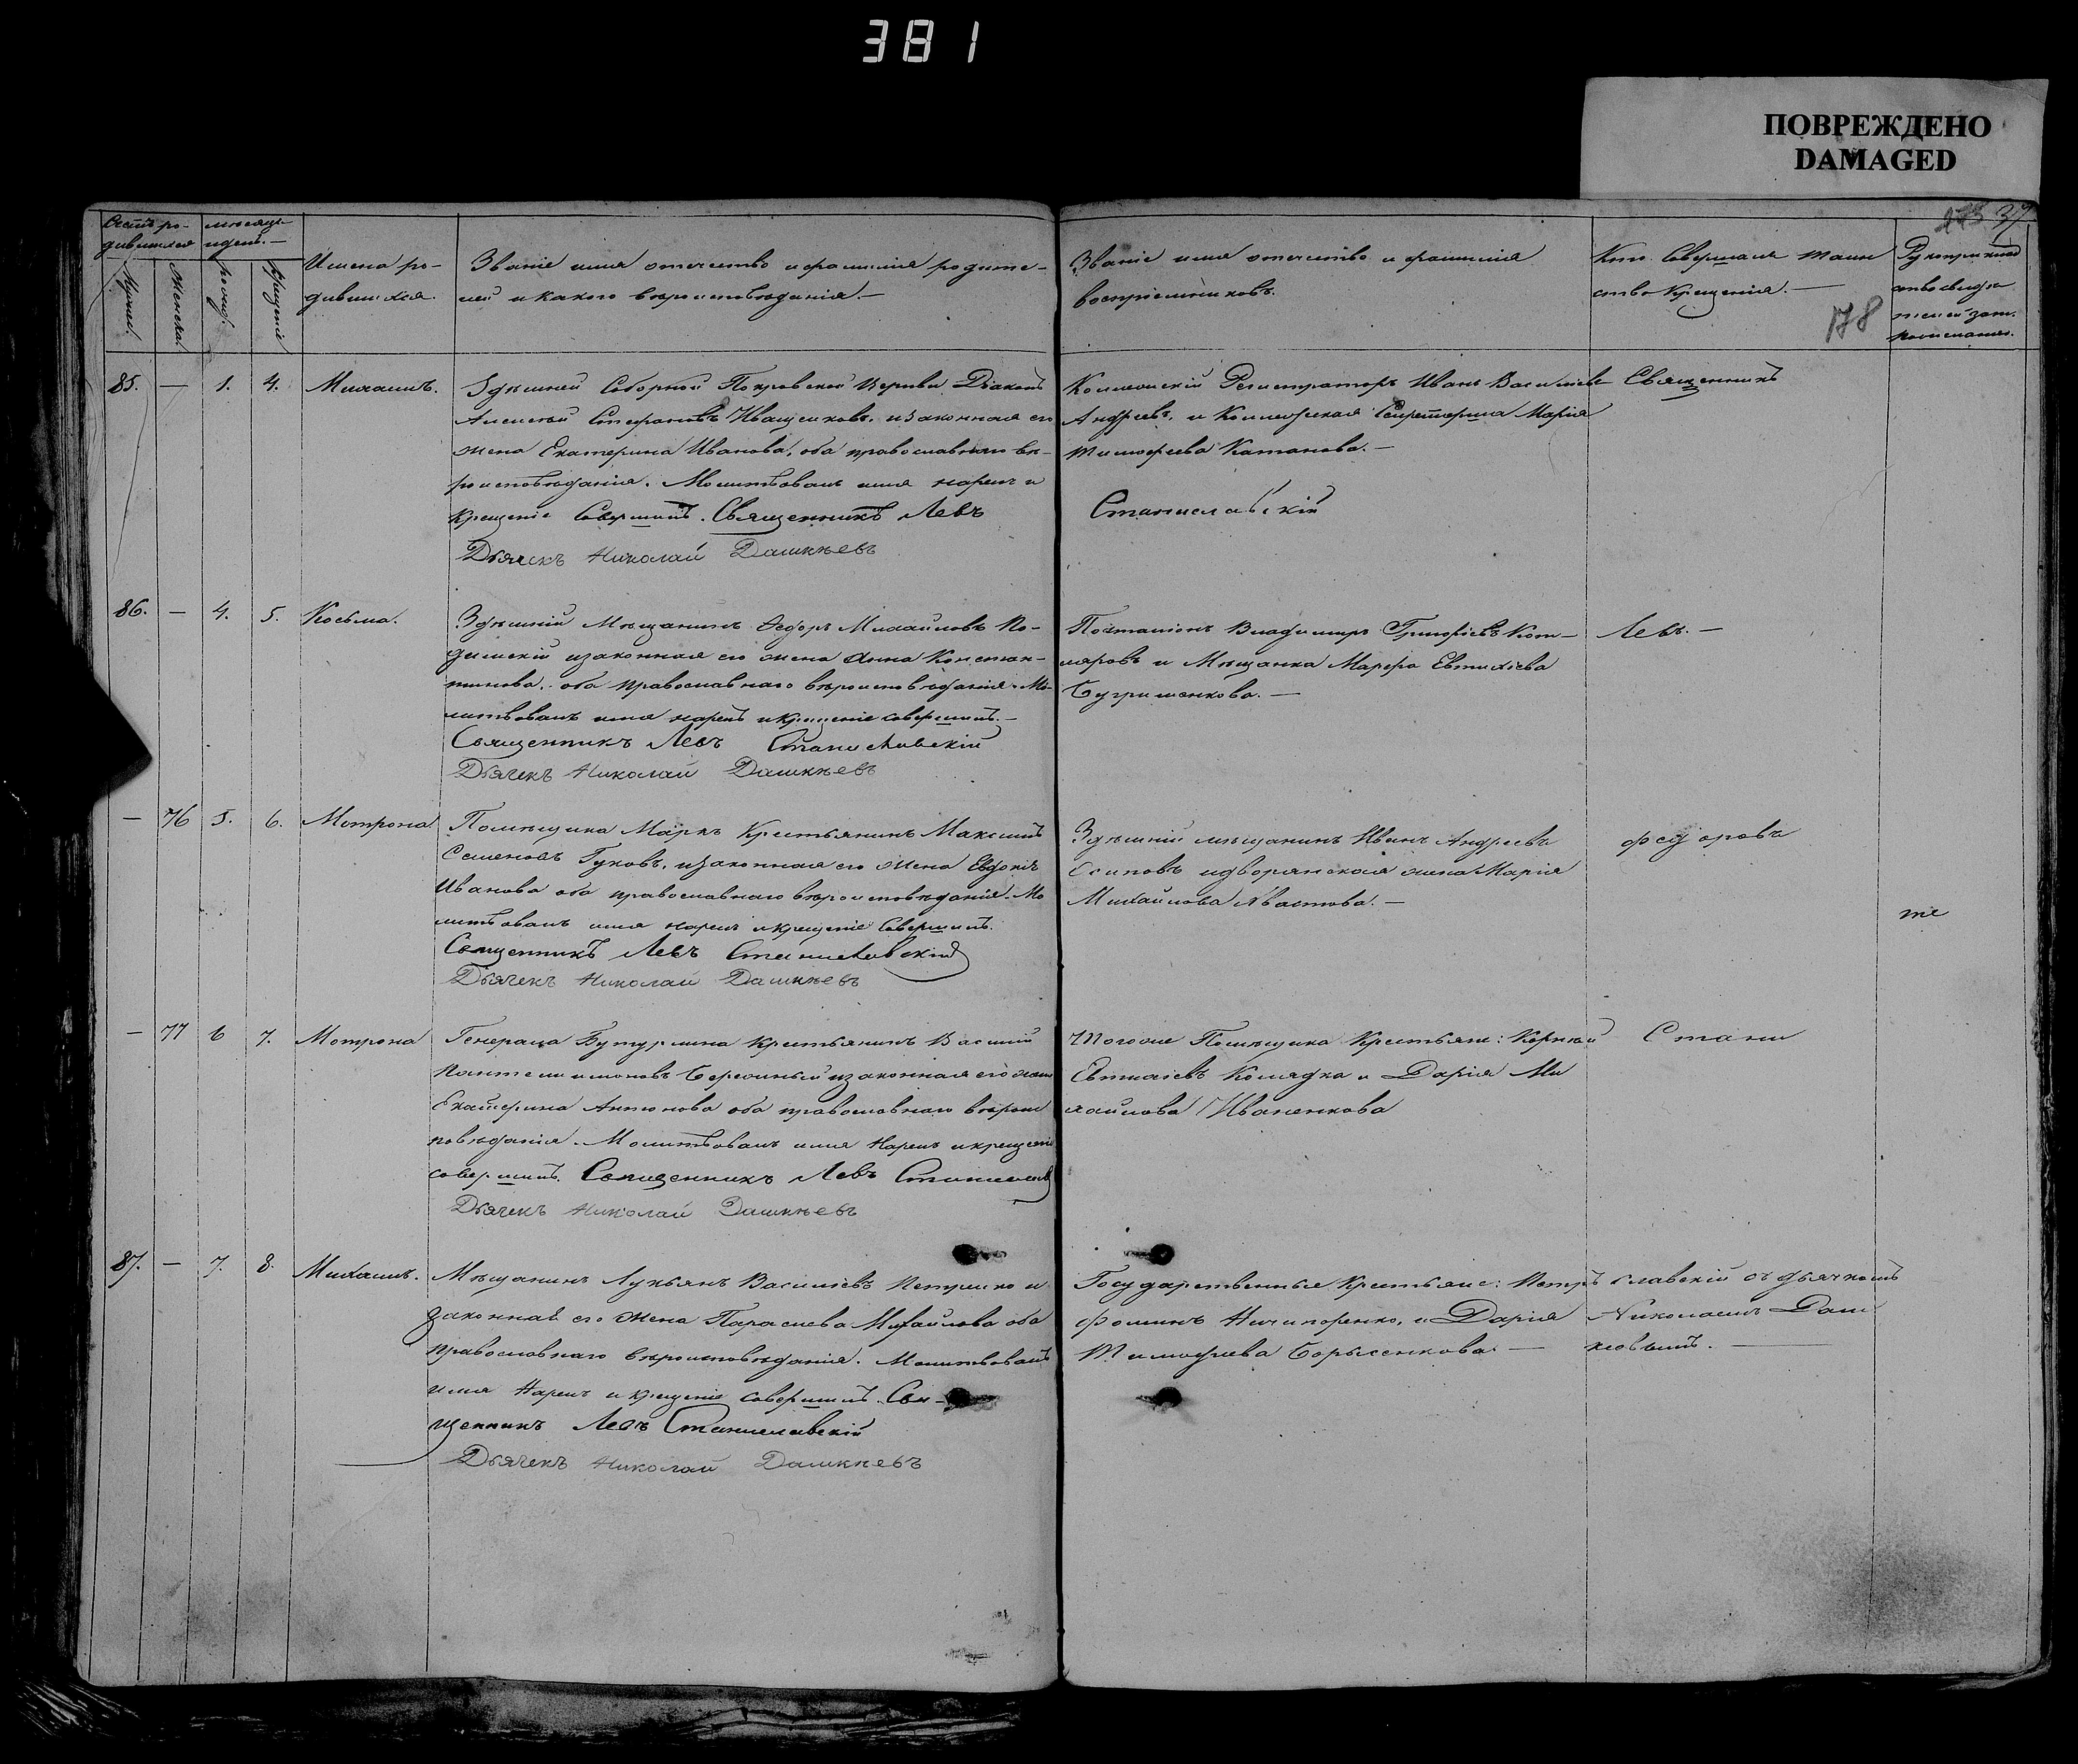 381
ПОВРЕЖДЕНО
DAMAGED
37
178
Счетъ ро-
дившихся
месяцъ
и день.—
Мужеск.
Женска.
рожд.
Крещенiе
Имена ро-
дившихся.
Званiе имя отечество и фамилiя родите-
лей и какого вѣроисповѣданiя.—
Званiе имя отечество и фамилiя
воспрiемниковъ.
Кто Совершалъ Таин
ство Крещенiя.—
Рукоприклад
ство свидѣ
телей
85. — 1. 4. Михаилъ.
Здѣшней Соборной Покровской Церкви Дiаконъ
Алексѣй Стефановъ Иващенковъ, и законная его
жена Екатерина Иванова, оба православнаго вѣ-
роисповѣданiя. Молитвовалъ имя нарекъ и
Крещенiе Совершилъ. Священникъ Левъ
Станиславскiй
Дьячекъ Николай Дашкѣевъ
Коллежскiй Регистраторъ Иванъ Василiевъ
Андреевъ, и Коллежская Секретарша Марiя
Тимофеева Катанова.—
Священникъ
86. — 4. 5. Косьма.
Здѣшнiй Мѣщанинъ Федоръ Михайловъ Ко-
и законная его жена Анна Констан-
тинова, оба православнаго вѣроисповѣданiя. Мо-
литвовалъ имя нарекъ и крещенiе совершилъ.—
Священникъ Левъ Станиславскiй
Дьячекъ Николай Дашкѣевъ
Почталiонъ Владимиръ Григорiевъ Кот-
ляровъ и Мѣщанка Марфа Евтихiева
Бугрименкова.—
Левъ.—
— 76 5. 6. Мотрона
Помѣщика Маркъ Крестьянинъ Максимъ
Семеновъ Гуковъ, и законная его жена Евдокiя
Иванова оба православнаго вѣроисповѣданiя. Мо
литвовалъ имя нарекъ и крещенiе Совершилъ.
Священникъ Левъ Станиславскiй
Дьячекъ Николай Дашкѣевъ
Здѣшнiй мѣщанинъ Иванъ Андреевъ
Есиповъ и дворянская жена Марiя
Михайлова
Федоровъ
те
— 77 6 7. Мотрона
Генерала Бутурлина Крестьянинъ Василiй
Пантелимоновъ и законная его жена
Екатерина Антонова оба православнаго вѣроис
повѣданiя. Молитвовалъ имя Нарекъ и крещенiе
совершилъ. Священникъ Левъ Станиславскiй
Дьячекъ Николай Дашкѣевъ
Тогоже Помѣщика Крестьяне: Корнѣй
Евтихiевъ Колядка и Дарiя Ми
хайлова Иваненкова
Стани
87. — 7. 8. Михаилъ.
Мѣщанинъ Лукьянъ Василiевъ Петренко и
законная его жена Параскева Михайлова оба
православнаго вѣроисповѣданiя. Молитвовалъ
имя Нарекъ и крещенiе совершилъ. Свя-
щенникъ Левъ Станиславскiй
Дьячекъ Николай Дашкѣевъ
Государственные Крестьяне: Петръ
Фоминъ Ничипоренко, и Дарiя
Тимофеева Борысенкова.—
славскiй съ дьячкомъ
Николаемъ Даш
кѣевымъ.—